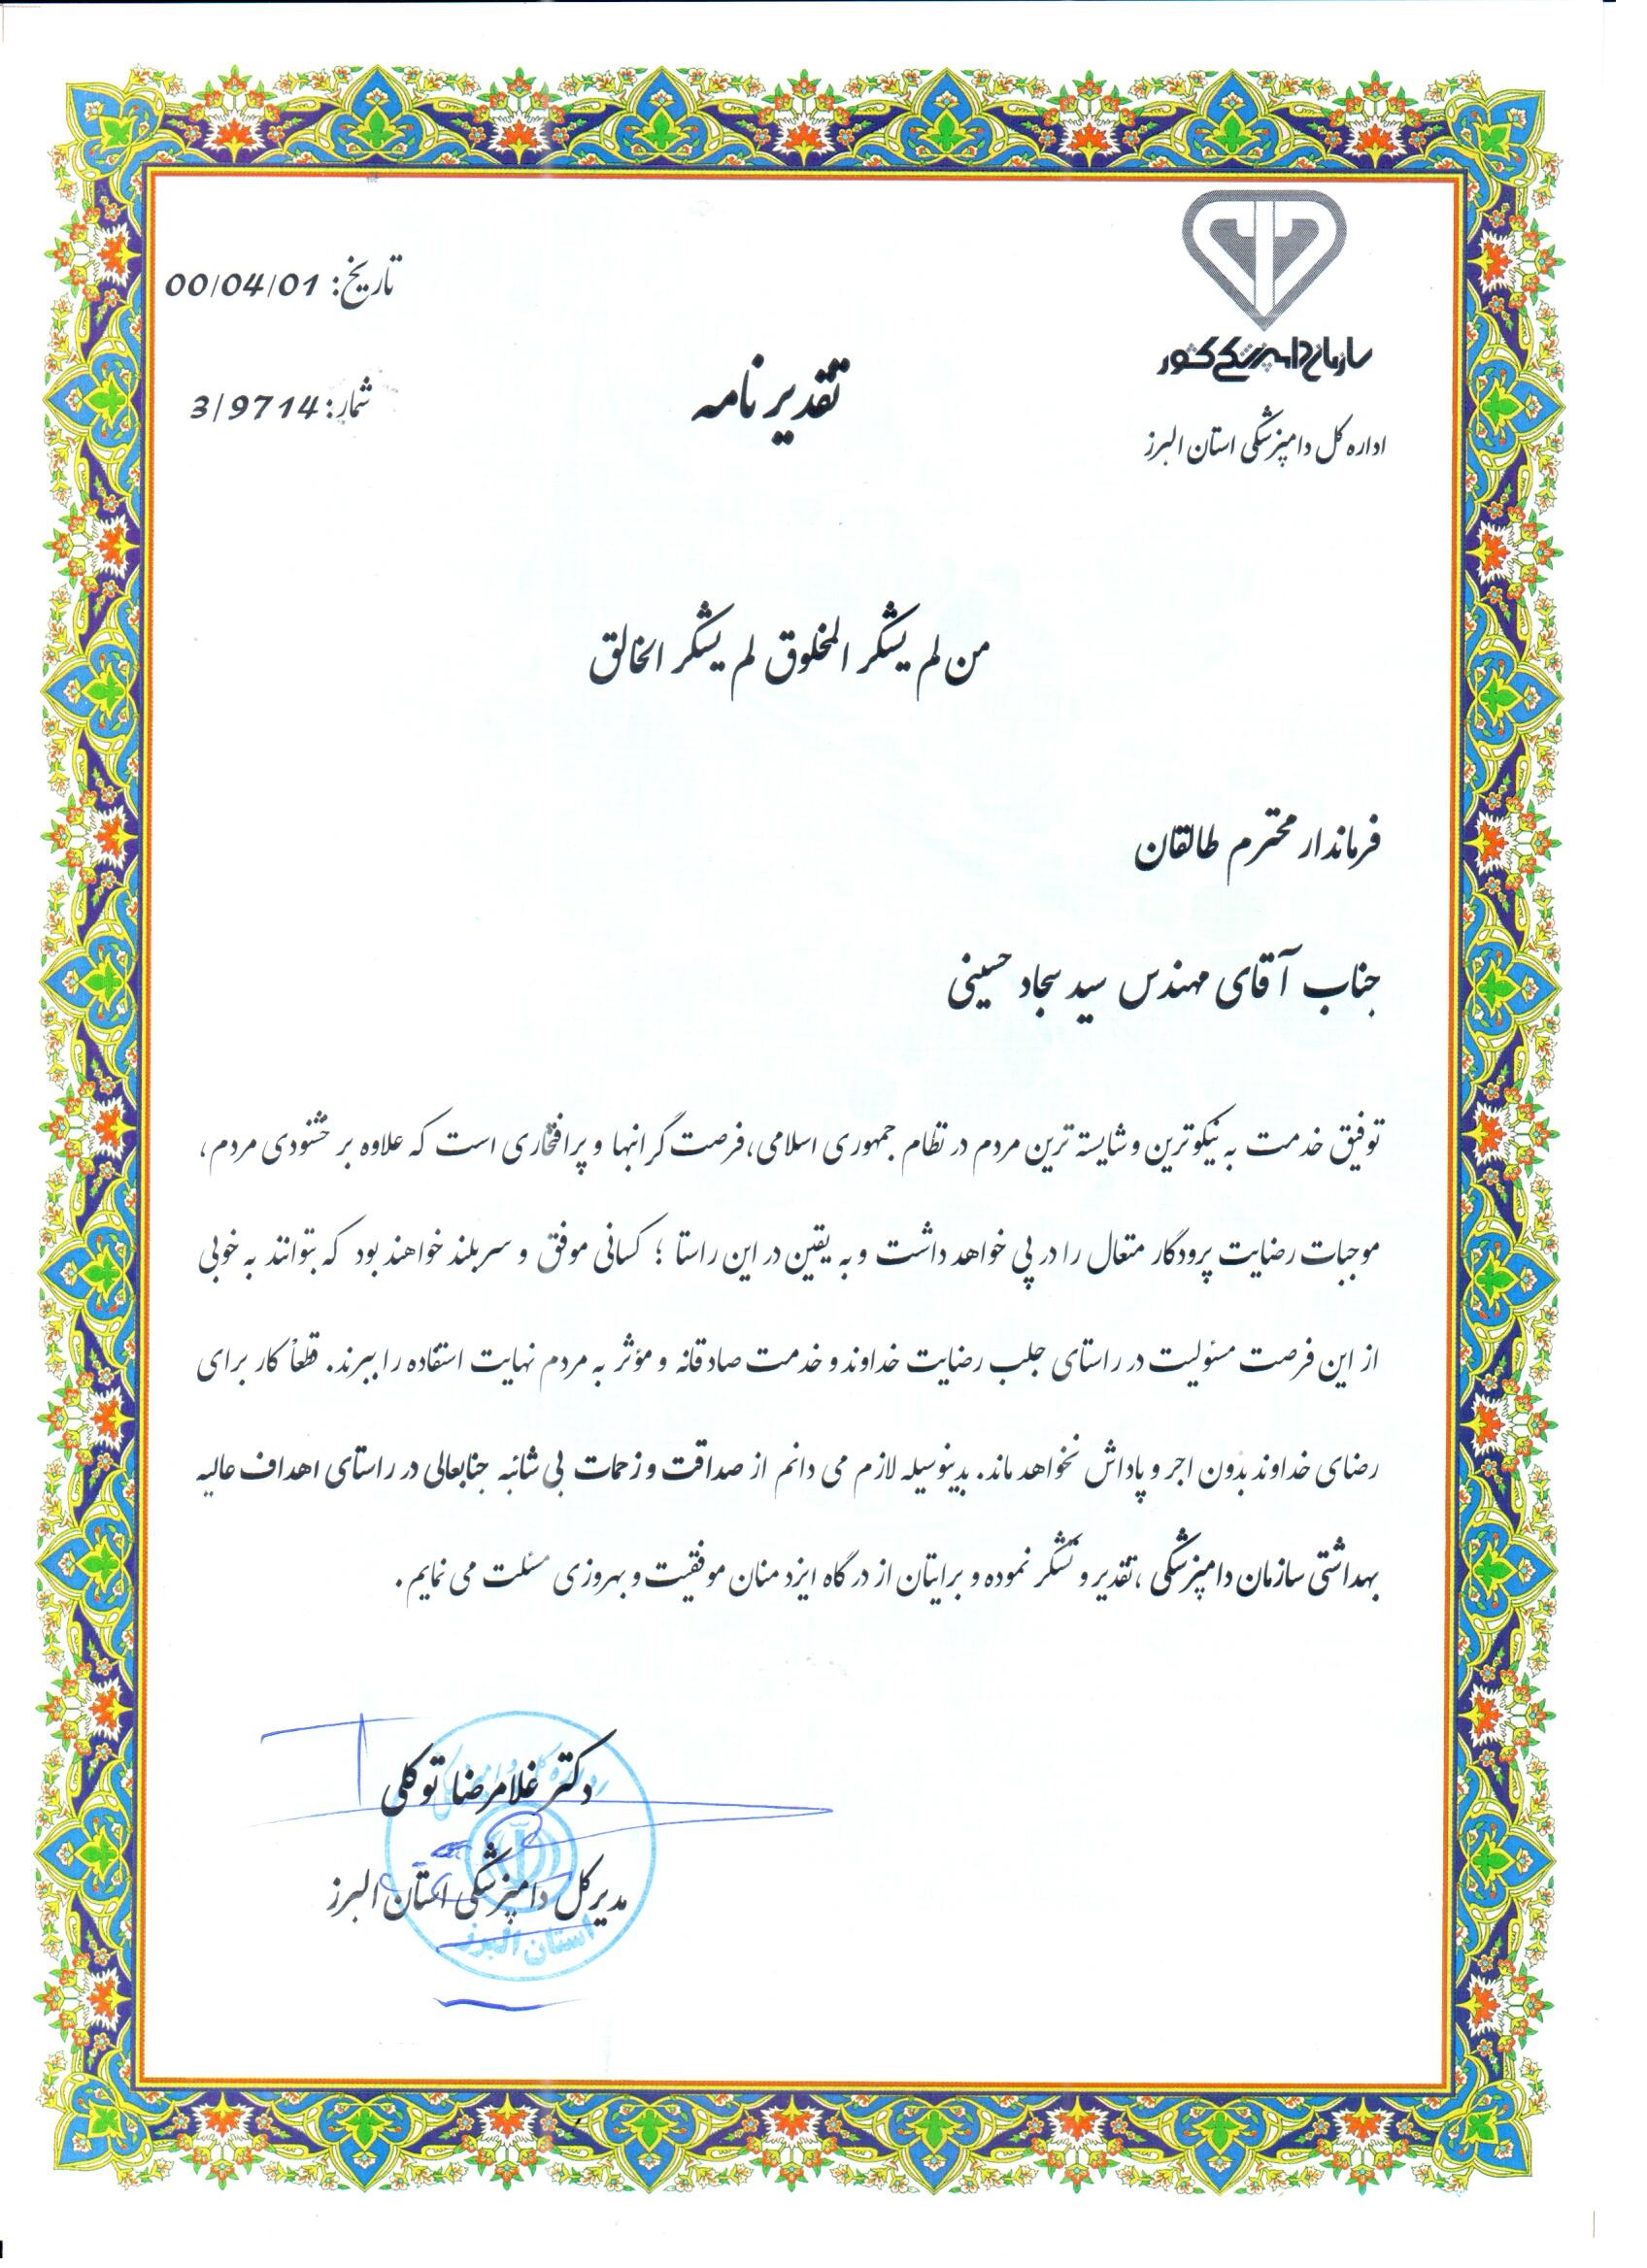 سازمان دامپزشکی کشور
اداره کل دامپزشکی استان البرز
تاریخ: 00/04/01
شمار: 3/9714
تقدیر نامه
من لم یشکر المخلوق لم یشکر الخالق
فرماندار محترم طالقان
جناب آقای مهندس سید سجاد حسینی
توفیق خدمت به نیکوترین و شایسته ترین مردم در نظام جمهوری اسلامی،فرصت گرانبها و پرافتخاری است که علاوه بر خشنودی مردم،
موجبات رضایت پرودگار متعال را در پی خواهد داشت و به یقین در این راستا ؛ کسانی موفق و سربلند خواهند بود که بتوانند به خوبی
از این فرصت مسئولیت در راستای جلب رضایت خداوند و خدمت صادقانه و مؤثر به مردم نهایت استفاده را ببرند. قطعاً کار برای
رضای خداوند بدون اجر و پاداش نخواهد ماند. بدینوسیله لازم می دانم از صداقت و زحمات بی شائبه جنابعالی در راستای اهداف عالیه
بهداشتی سازمان دامپزشکی ،تقدیر و تشکر نموده و برایتان از درگاه ایزد منان موفقیت و بهروزی مسئلت می نمایم.
دکتر غلامرضا توکلی
مدیرکل دامپزشکی استان البرز
استان البرز